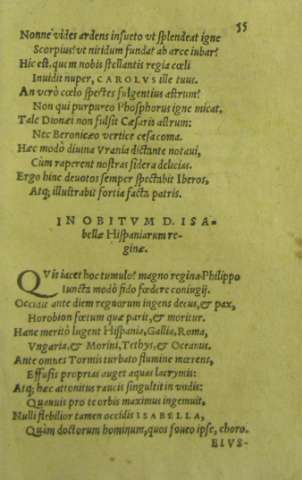 55
Nonne vides ardens insueto ut splendeat igne
Scorpius? ut nitidum fundat ab arce iubar?
Hic est, quem nobis stellantis regia cœli
Inuidit nuper, CAROLVS ille tuus.
An verò cœlo spectes fulgentius astrum?
Non qui purpureo Phosphorus igne micat.
Tale Dionæi non fulsit Cæsaris astrum:
Nec Beronicæo vertice cesa coma.
Hæc modò diuina Vrania dictante notaui,
Cum raperent nostras sidera delicias.
Ergo hinc deuotos semper spectabit Iberos,
Atq; illustrabit fortia facta patris.
IN OBITVM D. ISA-
bellæ Hispaniarum re-
ginæ.
QVis iacet hoc tumulo? magno regina Philippo
Iuncta modò fido fœdere coniugij.
Occidit ante diem regnorum ingens decus, & pax,
Horobion fœtum quæ parit, & moritur.
Hanc meritò lugent Hispania, Gallia, Roma,
Vngaria, & Morini, Tethys, & Oceanus.
Ante omnes Tormis turbato flumine mœrens,
Effusis proprias auget aquas lacrymis:
Atq; hæc attonitus raucis singultit in vndis:
Quamuis pro te orbis maximus ingemuit,
Nulli flebilior tamen occidis ISABELLA,
Quàm doctorum hominum, quos foueo ipse, choro.
EIVS-